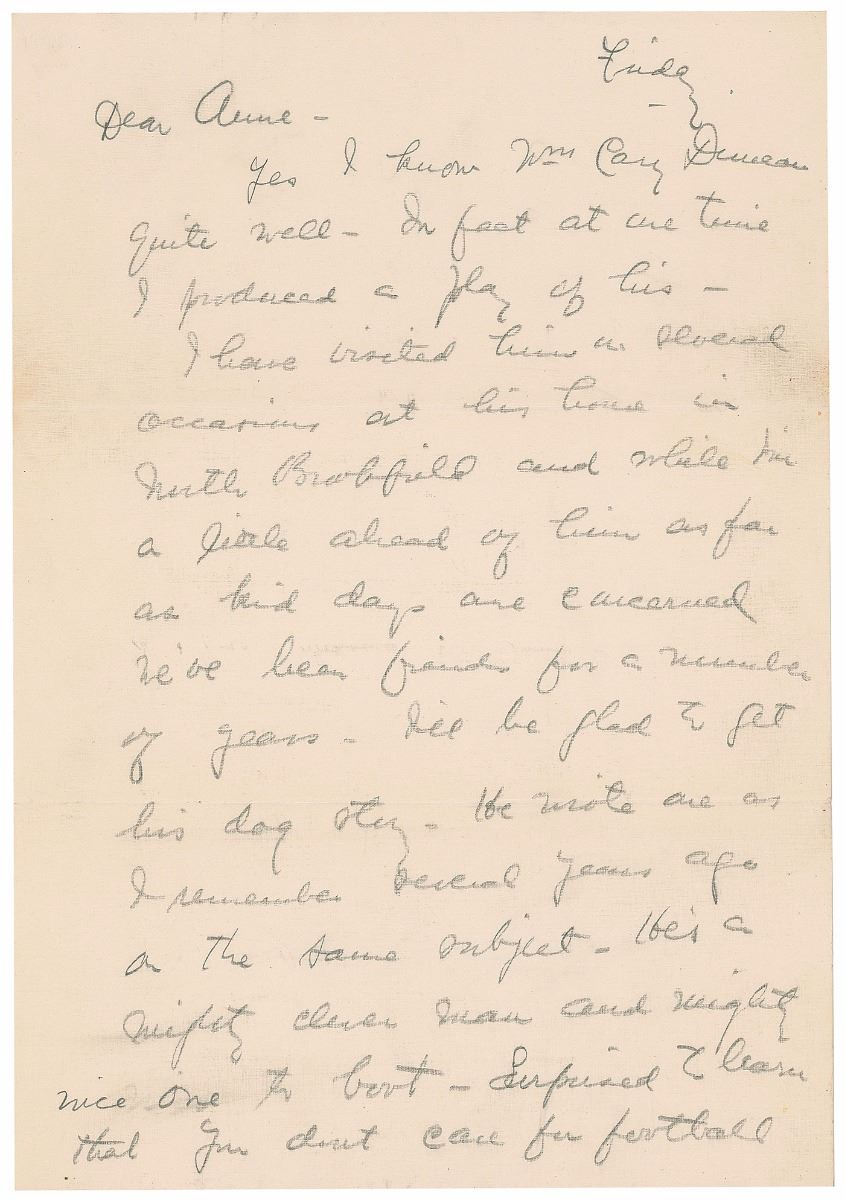 Friday
Dear Anne -
Yes I know Wm Cary Duncan
quite well - In fact at one time
I produced a play of his -
I have visited him on several
occasions at his home in
North Brookfield and while I'm
a little ahead of him as far
as kid days are concerned
we've been friends for a number
of years - I'll be glad to get
his dog story - He wrote one as
I remember several years ago
on the same subject - He's a
mighty clever man and mighty
nice one to boot - Surprised to learn
that you dont care for football